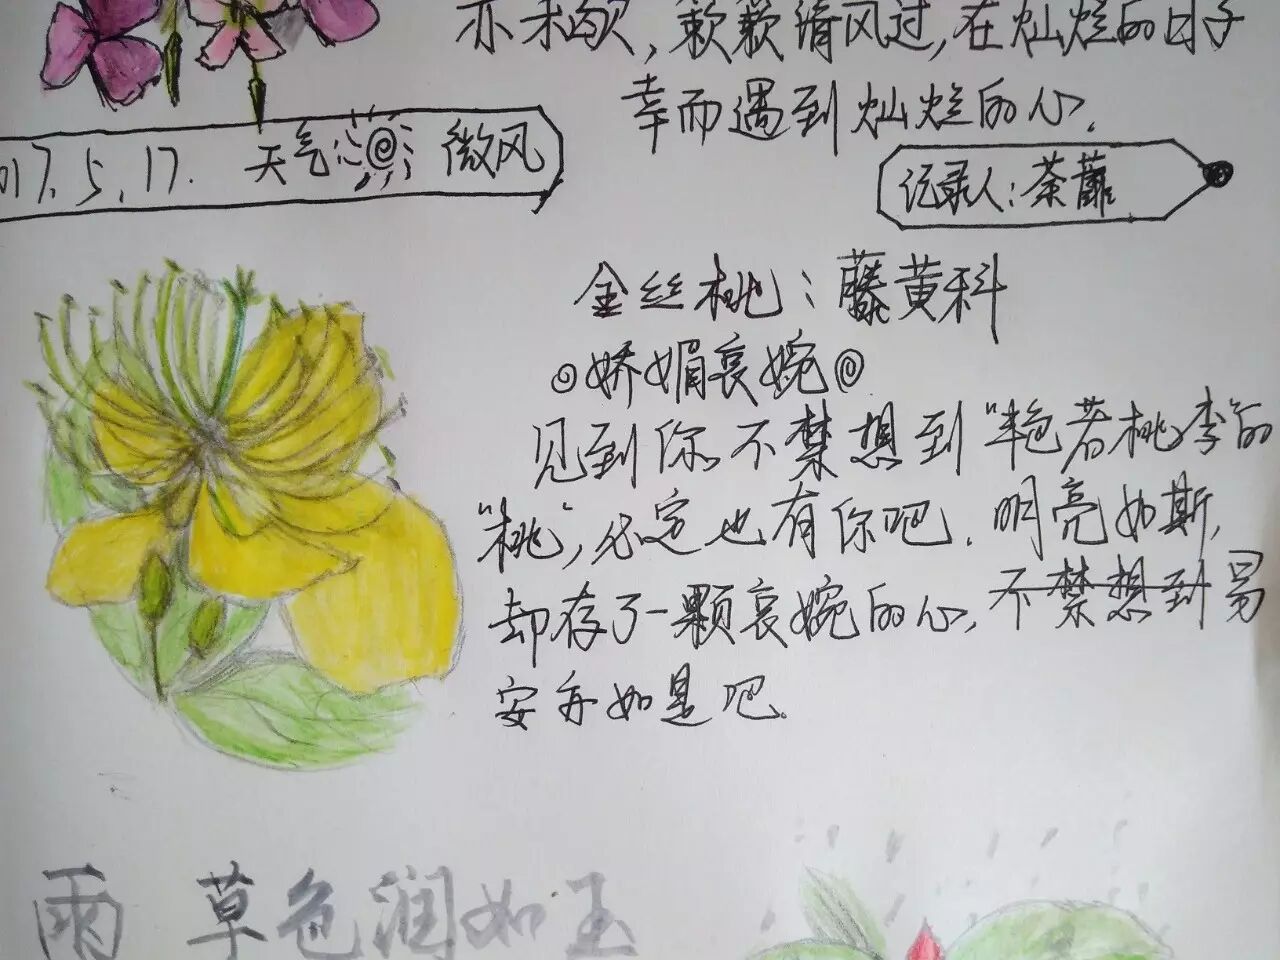 亦未歇,簌簌清风过,在灿烂的日子
幸而遇到灿烂的心.
017.5.17. 天气 微风
记录人:荼蘼
金丝桃:藤黄科
娇媚哀婉
见到你不禁想到"艳若桃李"的
"桃",必定也有你吧.明亮如斯,
却存了一颗哀婉的心,不禁想到另
安奔如是吧.
雨 草色润如玉